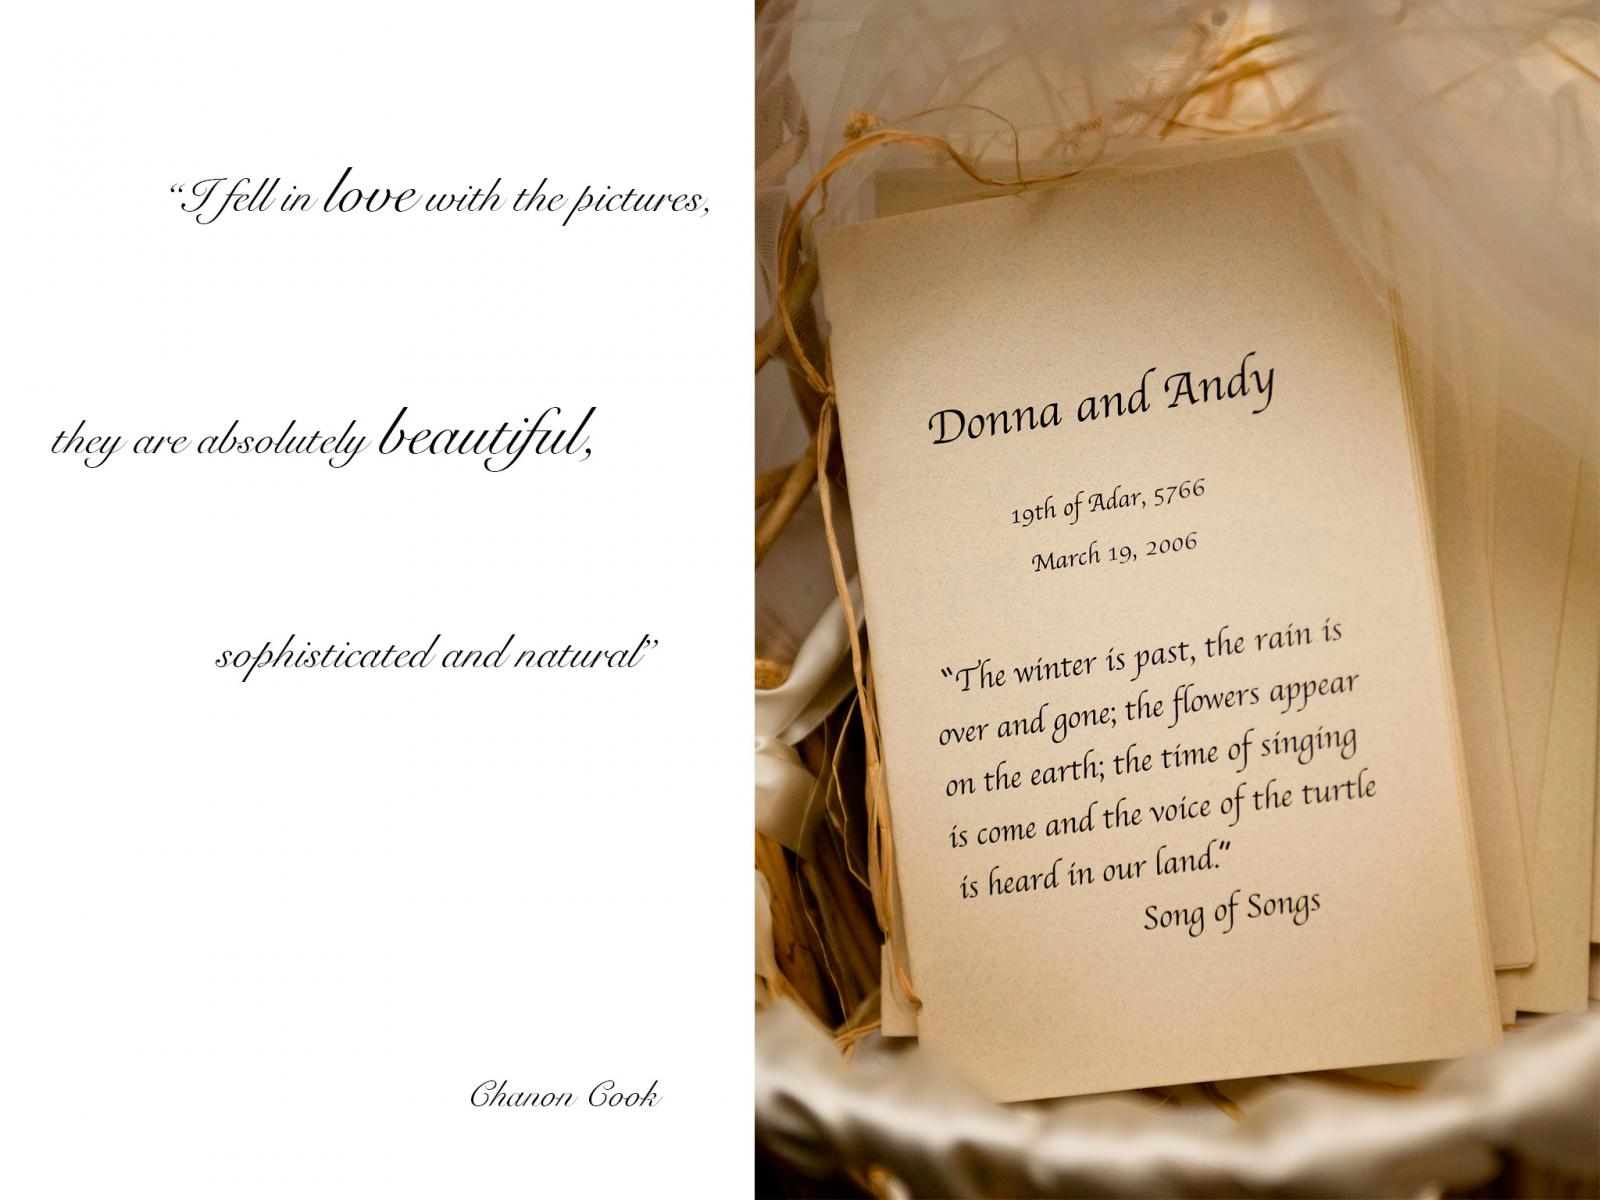 “I fell in love with the pictures,
they are absolutely beautiful,
sophisticated and natural”
Chanon Cook
Donna and Andy
19th of Adar, 5766
March 19, 2006
“The winter is past, the rain is
over and gone; the flowers appear
on the earth; the time of singing
is come and the voice of the turtle
is heard in our land.”
Song of Songs